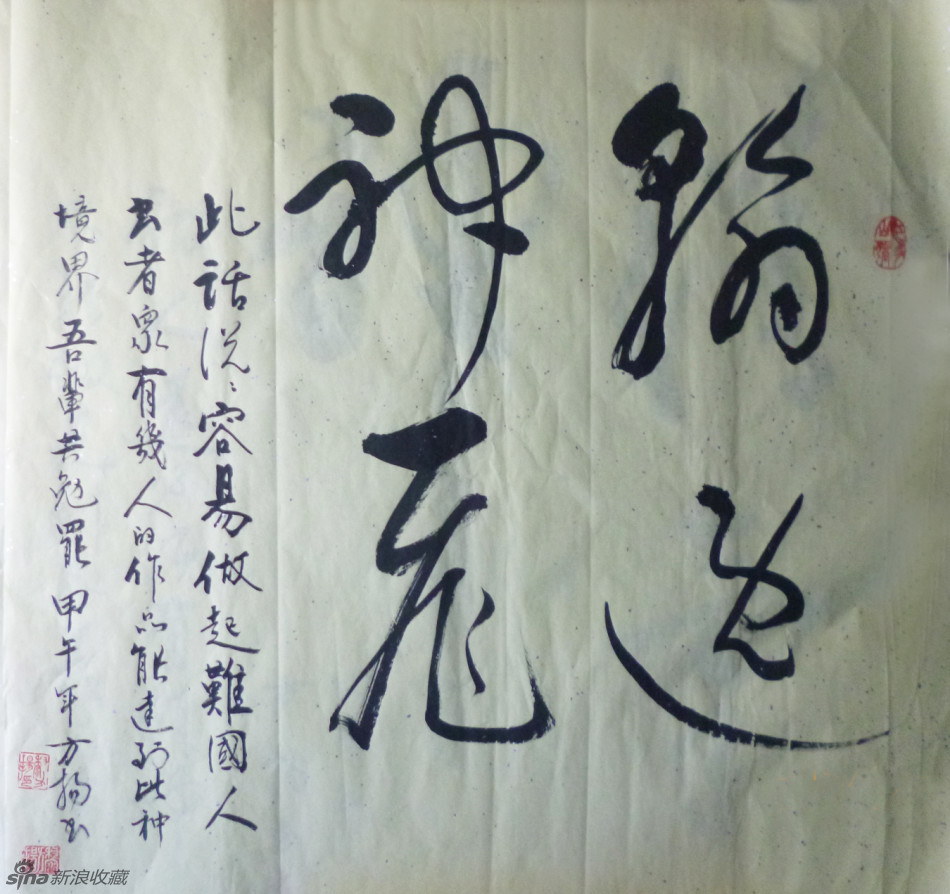 翰逸
神飛
此话说々容易做起難國人
书者众有幾人的作品能达到此种
境界吾輩共勉罷甲午年方扬书
sina新浪收藏